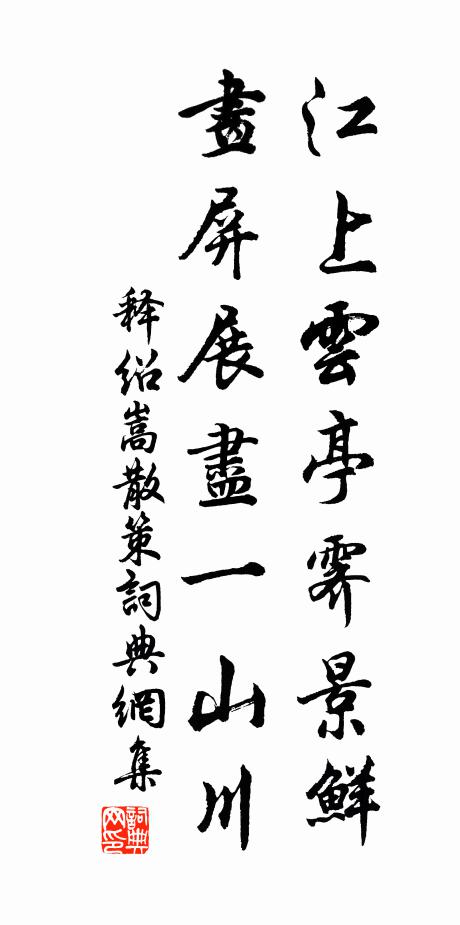 江上雲亭霽景鮮
畫屏展盡一山川
释绍嵩散策詞典網集
詞典网印